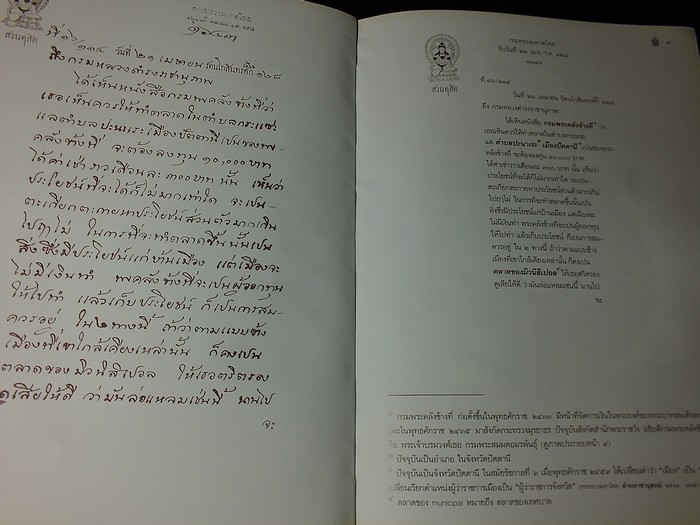 สวนดุสิต
วันที่ ๒๑ เมษายน รัตนโกสินทรศก ๑๒๘
ถึง กรมหลวงดำรงราชานุภาพ
ได้เห็นหนังสือกรมพระคลังข้างที่ว่า
เธอเห็นควรให้ทำตลาดในตำบลกระแซะ
แลตำบลปะนาเระเมืองปัตตานีเป็นของพระ
คลังข้างที่ จะต้องลงทุน ๑๐,๐๐๐ บาท
ได้ค่าเช่าราวเดือนละ ๓๐๐ บาท นั้น เห็นว่า
ประโยชน์ที่จะได้ก็ไม่มากเท่าใด จะเปน
ตะเกียกตะกายหาประโยชน์ส่วนตัวมากเกิน
ไปฤๅไม่ ในการที่จะทำตลาดขึ้นนั้นเปน
สิ่งซึ่งมีประโยชน์แก่บ้านเมือง แต่เมืองจะ
ไม่มีเงินทำ พระคลังข้างที่จะเป็นผู้ออกทุน
ให้ไปทำ แล้วเก็บประโยชน์ ก็เป็นการสม-
ควรอยู่ ใน ๒ ทางนี้ ถ้าว่าตามแบบข้าง
เมืองที่เขาใกล้เคียงเหล่านั้น ก็คงเปน
ตลาดของมิวนิสิเปอล ให้เธอตริตรอง
ดูเสียให้ดี ว่ามันล่อแหลมเช่นนี้ นานไป
จะ
กระทรวงมหาดไทย
สวนดุสิต
วันที่ ๒๑ เมษายน รัตนโกสินทรศก ๑๒๘
ถึง กรมหลวงดำรงราชานุภาพ
ได้เห็นหนังสือ กรมพระคลังข้างที่ ว่า
เธอเห็นควรให้ทำตลาดในตำบลกระแซะ
แล ตำบลปะนาเระ เมืองปัตตานี เป็นของพระ
คลังข้างที่ จะต้องลงทุน ๑๐,๐๐๐ บาท
ได้ค่าเช่าราวเดือนละ ๓๐๐ บาท นั้น เห็นว่า
ประโยชน์ที่จะได้ก็ไม่มากเท่าใด จะเปน
ตะเกียกตะกายหาประโยชน์ส่วนตัวมากเกิน
ไปฤๅไม่ ในการที่จะทำตลาดขึ้นนั้นเปน
สิ่งซึ่งมีประโยชน์แก่บ้านเมือง แต่เมืองจะ
ไม่มีเงินทำ พระคลังข้างที่จะเป็นผู้ออกทุน
ให้ไปทำ แล้วเก็บประโยชน์ ก็เป็นการสม-
ควรอยู่ ใน ๒ ทางนี้ ถ้าว่าตามแบบข้าง
เมืองที่เขาใกล้เคียงเหล่านั้น ก็คงเปน
ตลาดของมิวนิสิเปอล ให้เธอตริตรอง
ดูเสียให้ดี ว่ามันล่อแหลมเช่นนี้ นานไป
จะ
กรมพระคลังข้างที่ ก่อตั้งขึ้นในพุทธศักราช ๒๔๓๓ มีหน้าที่จัดการเงินในพระองค์ของพระบาทสมเด็จ
ในพุทธศักราช ๒๔๓๕ มาสังกัดกระทรวงมุรธาธร ปัจจุบันสังกัดสำนักพระราชวัง อธิบดีกรมพระคลังข้าง
คือ พระเจ้าบรมวงศ์เธอ กรมพระสมมตอมรพันธุ์ (ดูภาพประกอบหน้า
ปัจจุบันเป็นอำเภอ ในจังหวัดปัตตานี
ปัจจุบันเป็นจังหวัดปัตตานี ในสมัยรัชกาลที่ ๖ เมื่อพุทธศักราช ๒๔๕๙ ได้เปลี่ยนคำว่า "เมือง" เป็น
เปลี่ยนเรียกตำแหน่งผู้ว่าราชการเมืองเป็น "ผู้ว่าราชการจังหวัด"
ตลาดของ municipal หมายถึง ตลาดของเทศบาล